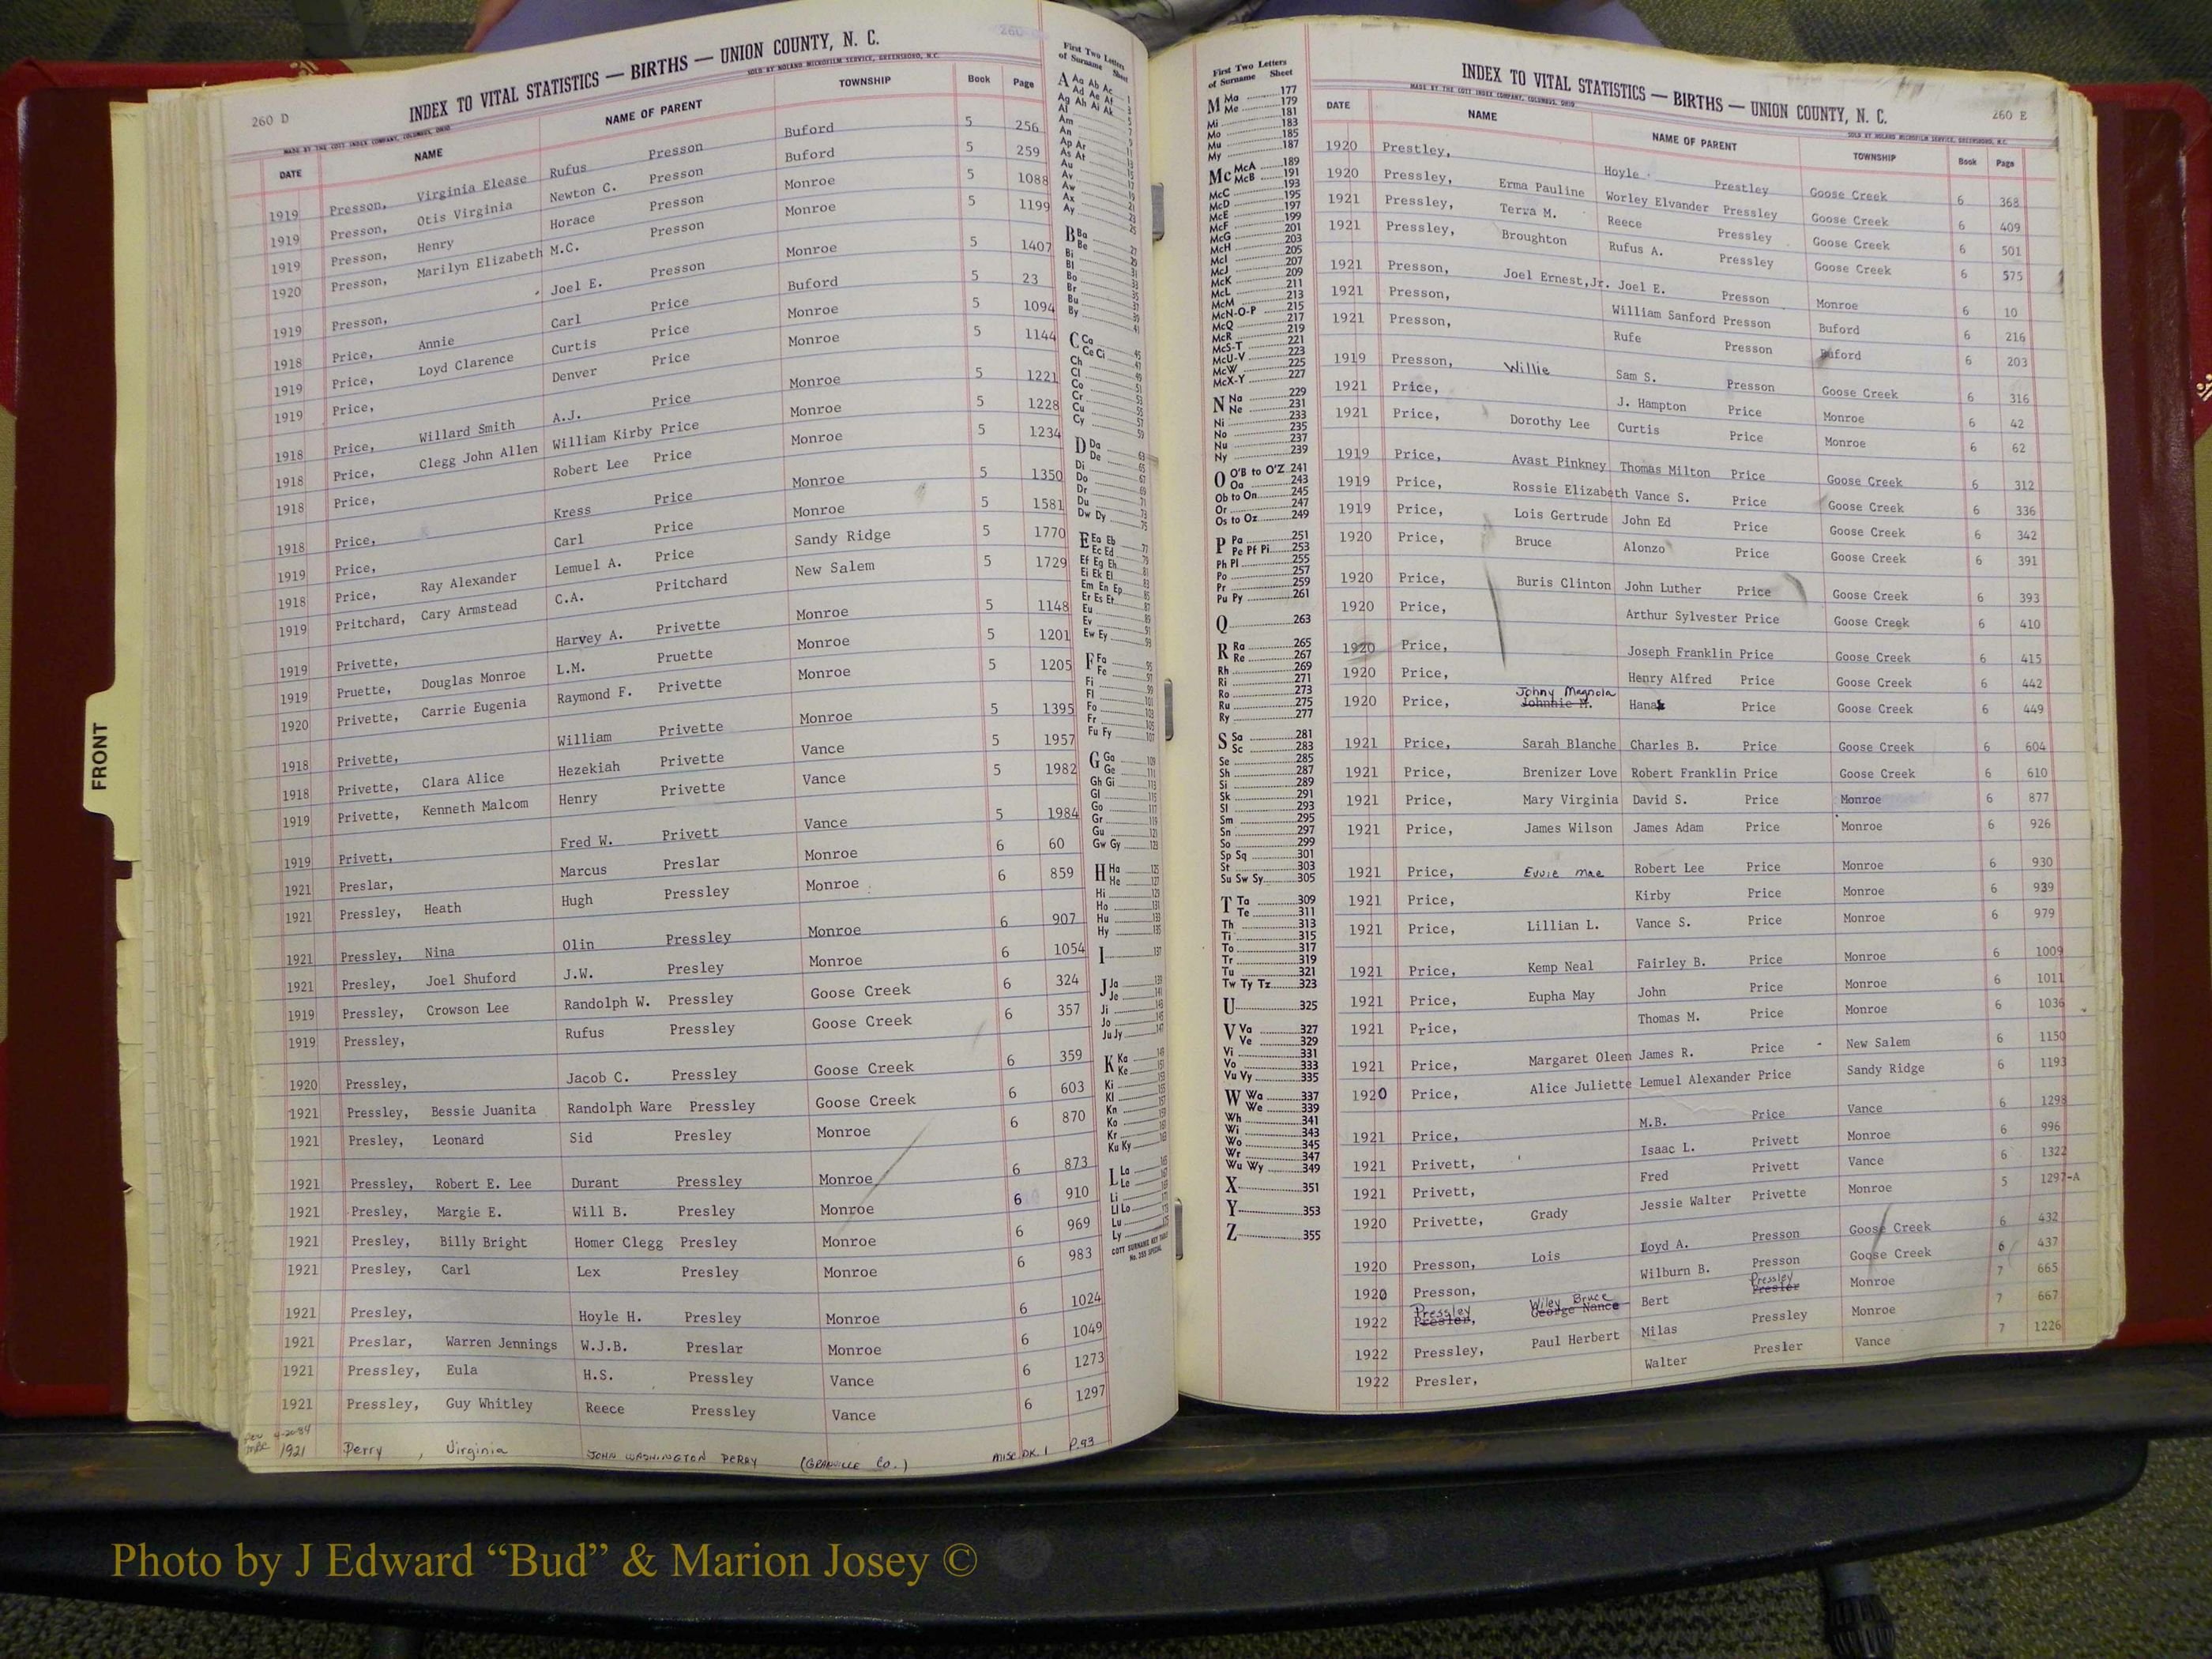 260 D
INDEX TO VITAL STATISTICS — BIRTHS — UNION COUNTY, N. C.
MADE BY THE COTT INDEX COMPANY, COLUMBUS, OHIO SOLD BY NOLAND MICROFILM SERVICE, GREENSBORO, N.C.
DATE NAME NAME OF PARENT TOWNSHIP Book Page
1919 Presson, Virginia Elease Rufus Presson Buford 5 256
1919 Presson, Otis Virginia Newton C. Presson Buford 5 259
1919 Presson, Henry Horace Presson Monroe 5 1088
1920 Presson, Marilyn Elizabeth M.C. Presson Monroe 5 1199
1919 Presson, Joel E. Presson Monroe 5 1407
1918 Price, Annie Carl Price Buford 5 23
1919 Price, Loyd Clarence Curtis Price Monroe 5 1094
1919 Price, Denver Price Monroe 5 1144
1918 Price, Willard Smith A.J. Price Monroe 5 1221
1918 Price, Clegg John Allen William Kirby Price Monroe 5 1228
1918 Price, Robert Lee Price Monroe 5 1234
1918 Price, Kress Price Monroe 5 1350
1919 Price, Carl Price Monroe 5 1581
1918 Price, Ray Alexander Lemuel A. Price Sandy Ridge 5 1770
1919 Pritchard, Cary Armstead C.A. Pritchard New Salem 5 1729
1919 Privette, Harvey A. Privette Monroe 5 1148
1919 Pruette, Douglas Monroe L.M. Pruette Monroe 5 1201
1920 Privette, Carrie Eugenia Raymond F. Privette Monroe 5 1205
1918 Privette, William Privette Monroe 5 1395
1918 Privette, Clara Alice Hezekiah Privette Vance 5 1957
1919 Privette, Kenneth Malcom Henry Privette Vance 5 1982
1919 Privett, Fred W. Privett Vance 5 1984
1921 Preslar, Marcus Preslar Monroe 6 60
1921 Pressley, Heath Hugh Pressley Monroe 6 859
1921 Pressley, Nina Olin Pressley Monroe 6 907
1921 Presley, Joel Shuford J.W. Presley Monroe 6 1054
1919 Pressley, Crowson Lee Randolph W. Pressley Goose Creek 6 324
1919 Pressley, Rufus Pressley Goose Creek 6 357
1920 Pressley, Jacob C. Pressley Goose Creek 6 359
1921 Pressley, Bessie Juanita Randolph Ware Pressley Goose Creek 6 603
1921 Presley, Leonard Sid Presley Monroe 6 870
1921 Pressley, Robert E. Lee Durant Pressley Monroe 6 873
1921 Presley, Margie E. Will B. Presley Monroe 6 910
1921 Presley, Billy Bright Homer Clegg Presley Monroe 6 969
1921 Presley, Carl Lex Presley Monroe 6 983
1921 Presley, Hoyle H. Presley Monroe 6 1024
1921 Preslar, Warren Jennings W.J.B. Preslar Monroe 6 1049
1921 Pressley, Eula H.S. Pressley Vance 6 1273
1921 Pressley, Guy Whitley Reece Pressley Vance 6 1297
1921 Perry, Virginia JOHN WASHINGTON PERRY (GRANVILLE CO.) MISC BK. 1 P.93
FRONT
First Two Letters
of Surname Sheet
COTT SURNAME KEY TABLE
First Two Letters
of Surname Sheet
M Ma 177
Me 179
Mi 181
Mo 183
Mu 185
My 187
Mc McA 189
McB 191
McC 193
McD 195
McE 197
McF 199
McG 201
McH 203
McI 205
McJ 207
McK 209
McL 211
McM 213
McN-O-P 215
McQ 217
McR 219
McS-T 221
McU-V 223
McW 225
McX-Y 227
N Na 229
Ne 231
Ni 233
No 235
Nu 237
Ny 239
O O'B to O'Z 241
Oa 243
Ob to On 245
Or 247
Os to Oz 249
P Pa 251
Pe Pf Pi 253
Ph Pl 255
Po 257
Pr 259
Pu Py 261
Q 263
R Ra 265
Re 267
Rh 269
Ri 271
Ro 273
Ru 275
Ry 277
S Sa 281
Sc 283
Se 285
Sh 287
Si 289
Sk 291
Sl 293
Sm 295
Sn 297
So 299
Sp Sq 301
St 303
Su Sw Sy 305
T Ta 309
Te 311
Th 313
Ti 315
To 317
Tr 319
Tu 321
Tw Ty Tz 323
U 325
V Va 327
Ve 329
Vi 331
Vo 333
Vu Vy 335
W Wa 337
We 339
Wh 341
Wi 343
Wo 345
Wr 347
Wu Wy 349
X 351
Y 353
Z 355
INDEX TO VITAL STATISTICS — BIRTHS — UNION COUNTY, N. C.
260 E
MADE BY THE COTT INDEX COMPANY, COLUMBUS, OHIO SOLD BY NOLAND MICROFILM SERVICE, GREENSBORO, N.C.
DATE NAME NAME OF PARENT TOWNSHIP Book Page
1920 Prestley, Hoyle Prestley Goose Creek 6 368
1920 Pressley, Erma Pauline Worley Elvander Pressley Goose Creek 6 409
1921 Pressley, Terra M. Reece Pressley Goose Creek 6 501
1921 Pressley, Broughton Rufus A. Pressley Goose Creek 6 575
1921 Presson, Joel Ernest,Jr. Joel E. Presson Monroe 6 10
1921 Presson, William Sanford Presson Buford 6 216
1921 Presson, Rufe Presson Buford 6 203
1919 Presson, Willie Sam S. Presson Goose Creek 6 316
1921 Price, J. Hampton Price Monroe 6 42
1921 Price, Dorothy Lee Curtis Price Monroe 6 62
1919 Price, Avast Pinkney Thomas Milton Price Goose Creek 6 312
1919 Price, Rossie Elizabeth Vance S. Price Goose Creek 6 336
1919 Price, Lois Gertrude John Ed Price Goose Creek 6 342
1920 Price, Bruce Alonzo Price Goose Creek 6 391
1920 Price, Buris Clinton John Luther Price Goose Creek 6 393
1920 Price, Arthur Sylvester Price Goose Creek 6 410
1920 Price, Joseph Franklin Price Goose Creek 6 415
1920 Price, Henry Alfred Price Goose Creek 6 442
Johny Magnola
1920 Price, Johnnie M. Price Goose Creek 6 449
1921 Price, Sarah Blanche Charles B. Price Goose Creek 6 604
1921 Price, Brenizer Love Robert Franklin Price Goose Creek 6 610
1921 Price, Mary Virginia David S. Price Monroe 6 877
1921 Price, James Wilson James Adam Price Monroe 6 926
1921 Price, Evvie Mae Robert Lee Price Monroe 6 930
1921 Price, Kirby Price Monroe 6 939
1921 Price, Lillian L. Vance S. Price Monroe 6 979
1921 Price, Kemp Neal Fairley B. Price Monroe 6 1009
1921 Price, Eupha May John Price Monroe 6 1011
1921 Price, Thomas M. Price Monroe 6 1036
1921 Price, Margaret Oleen James R. Price New Salem 6 1150
1920 Price, Alice Juliette Lemuel Alexander Price Sandy Ridge 6 1193
1921 Price, M.B. Price Vance 6 1298
1921 Privett, Isaac L. Privett Monroe 6 996
1921 Privett, Fred Privett Vance 6 1322
1920 Privette, Grady Jessie Walter Privette Monroe 5 1297-A
1920 Presson, Lois Loyd A. Presson Goose Creek 6 432
1920 Presson, Wilburn B. Presson Goose Creek 6 437
Pressley Wiley Bruce Pressley
1922 Presler, George Nance Bert Presler Monroe 7 665
1922 Pressley, Paul Herbert Milas Pressley Monroe 7 667
1922 Presler, Walter Presler Vance 7 1226
Photo by J Edward “Bud” & Marion Josey ©